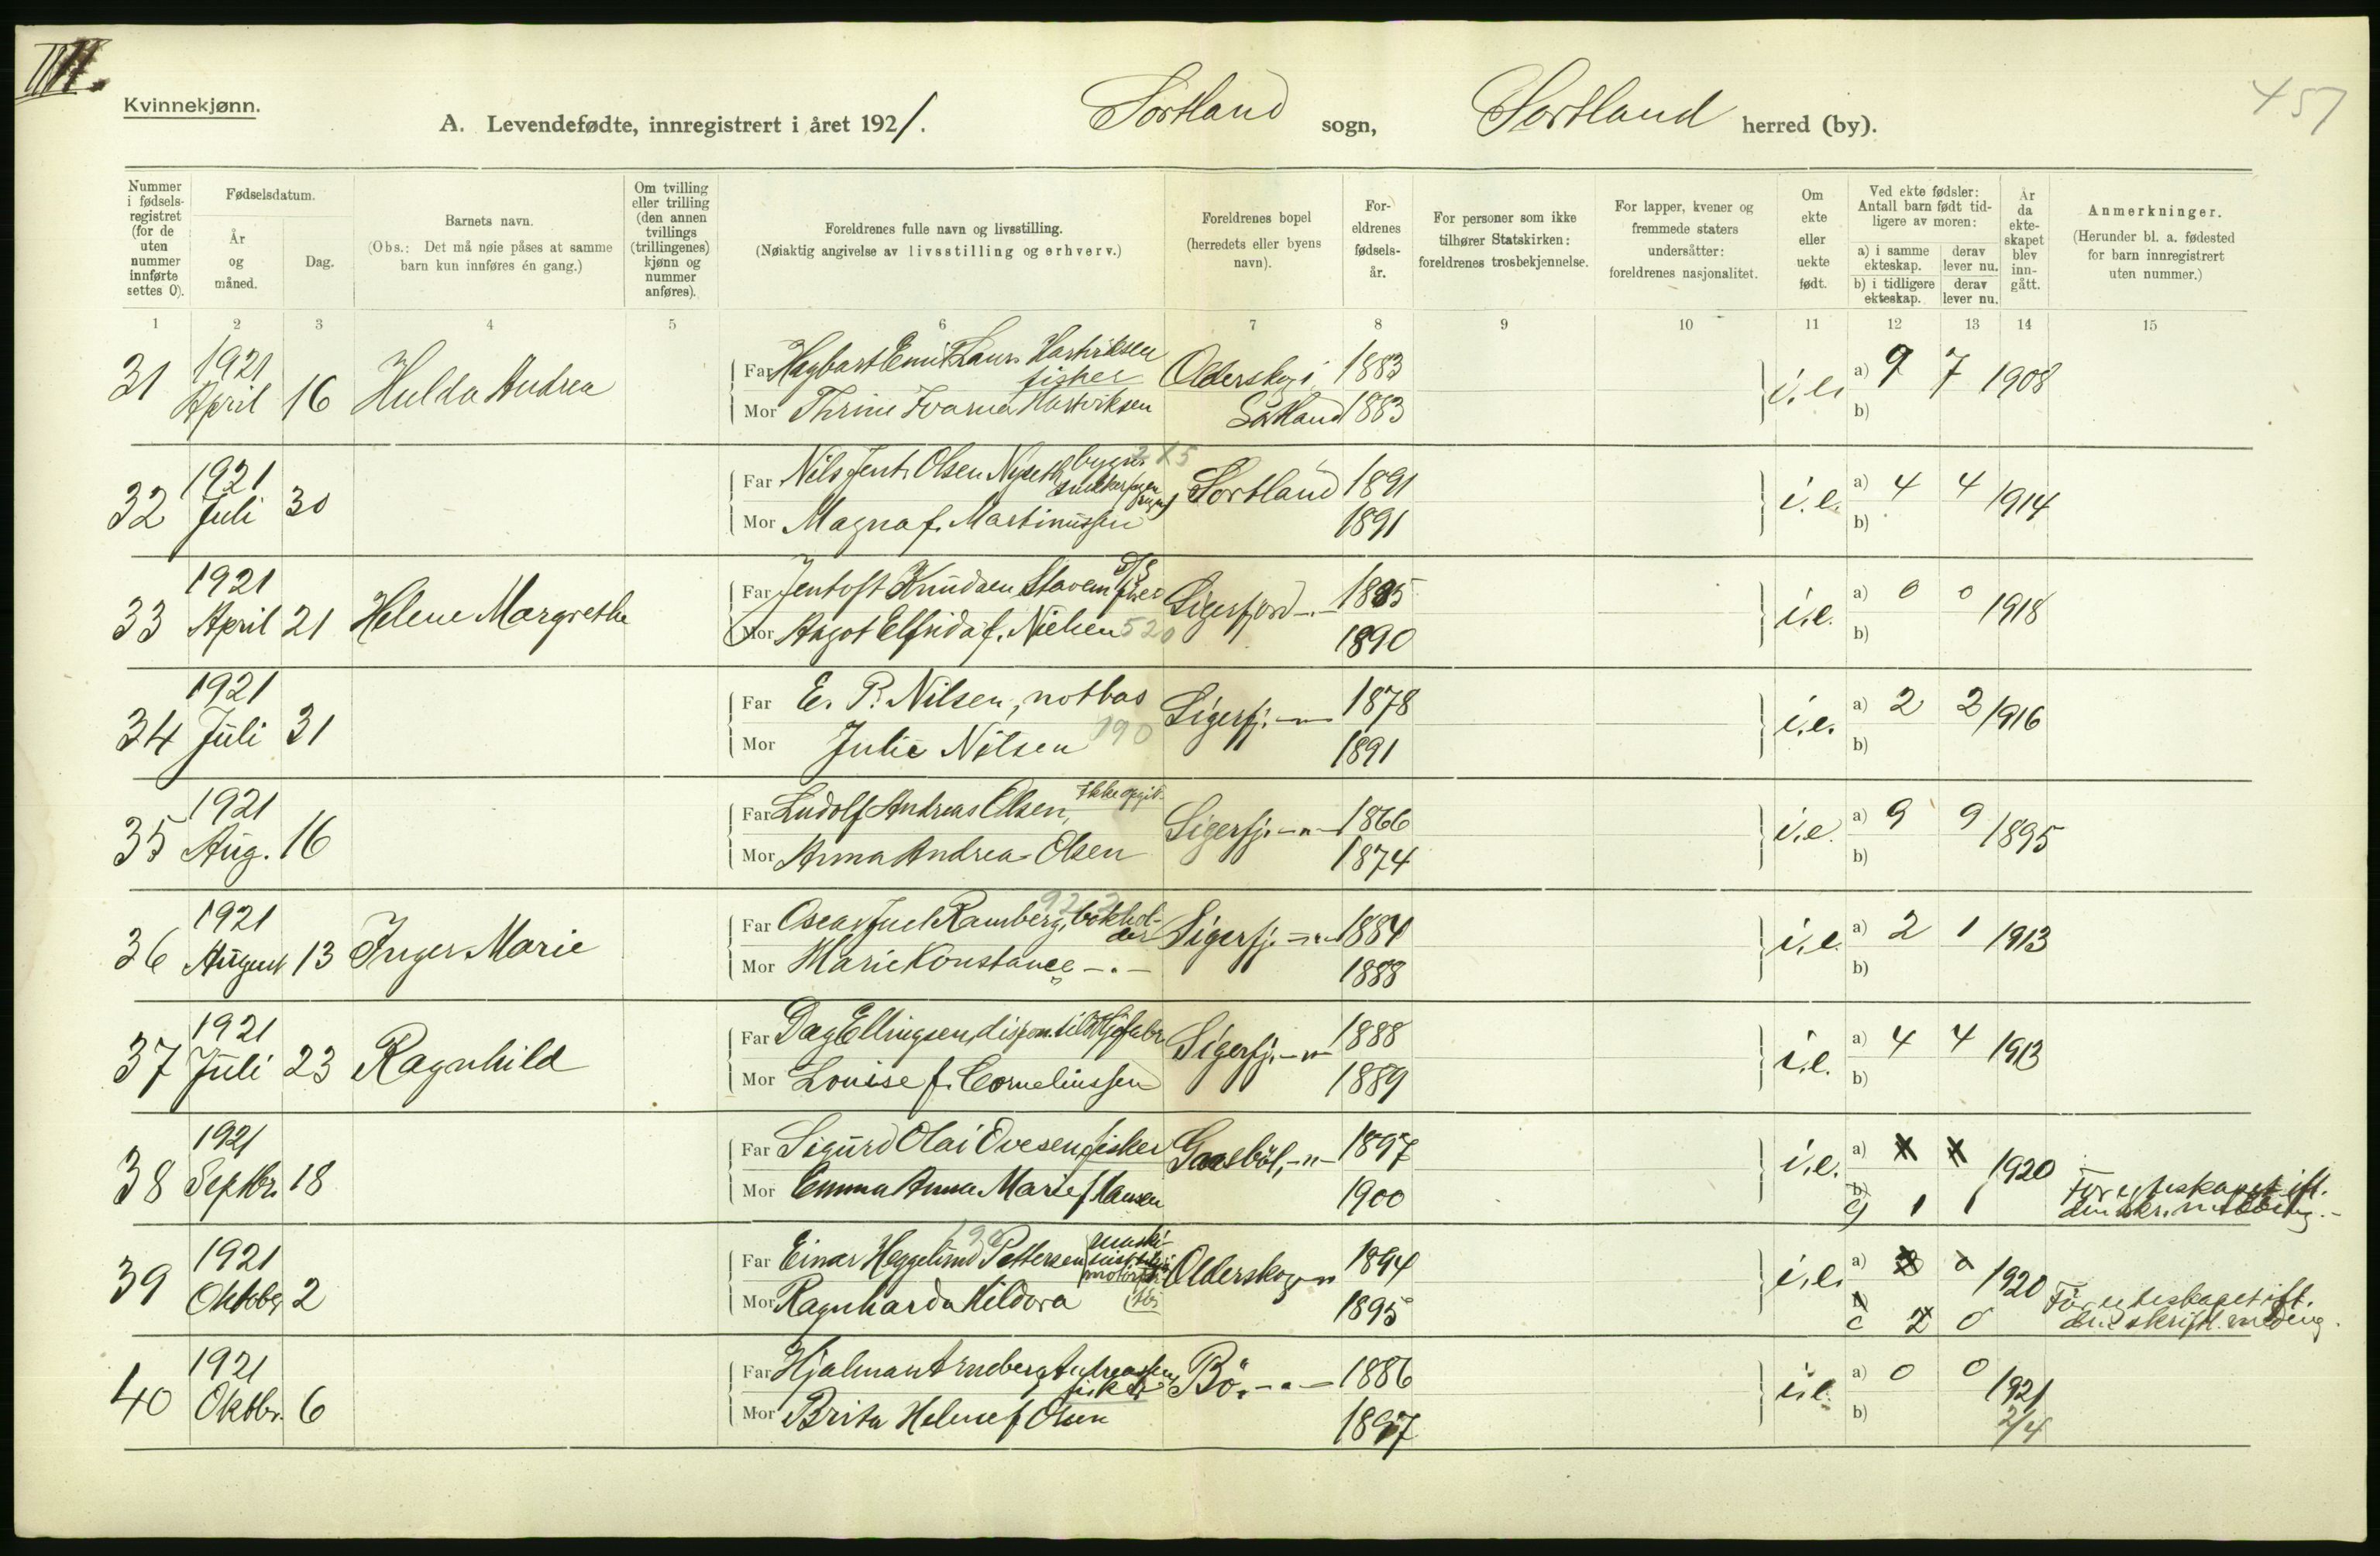 III.
Kvinnekjønn.
457
A. Levendefødte, innregistrert i året 1921.
Sortland sogn, Sortland herred (by).
Nummer i fødsels-registret (for de uten nummer innførte settes 0).
Fødselsdatum.
År og måned.
Dag.
Barnets navn.
(Obs.: Det må nøie påses at samme barn kun innføres én gang.)
Om tvilling eller trilling (den annen tvillings (trillingenes) kjønn og nummer anføres).
Foreldrenes fulle navn og livsstilling.
(Nøiaktig angivelse av livsstilling og erhverv.)
Foreldrenes bopel (herredets eller byens navn).
For-eldrenes fødsels-år.
For personer som ikke tilhører Statskirken: foreldrenes trosbekjennelse.
For lapper, kvener og fremmede staters undersåtter: foreldrenes nasjonalitet.
Om ekte eller uekte født.
Ved ekte fødsler: Antall barn født tid-ligere av moren:
a) i samme ekteskap.
derav lever nu.
b) i tidligere ekteskap.
derav lever nu.
År da ekte-skapet blev inn-gått.
Anmerkninger.
(Herunder bl. a. fødested for barn innregistrert uten nummer.)
1 2 3 4 5 6 7 8 9 10 11 12 13 14 15
31 1921 April 16 Hulda Andrea
Far Hagbart Emil Laur. Hartviksen fisker Olderskog i 1883
Mor Thrine Ivarna Hartviksen Sortland 1883
i.e. a) 9 7 1908
b)
32 1921 Juli 30
Far Nils Jent. Olsen Nyseth 215 Sortland 1891
Mor Magna f. Martinussen 1891
i.e. a) 4 4 1914
b)
33 1921 April 21 Helene Margrethe
Far Jentoft Knudsen Stavem Sigerfjord 1885
Mor Aagot Elfrida f. Nielsen 520 1890
i.e. a) 0 0 1918
b)
34 1921 Juli 31
Far E. P. Nilsen, notbas Sigerfj. -"- 1878
Mor Julie Nilsen 190 1891
i.e. a) 2 2 1916
b)
35 1921 Aug. 16
Far Ludolf Andreas Olsen, Ikke opgit. Sigerfj. -"- 1866
Mor Anna Andrea Olsen 1874
i.e. a) 9 9 1895
b)
36 1921 August 13 Inger Marie
Far Oscar Juel Ramberg, bokhol-der Sigerfj. -"- 1884
Mor Marie Konstance -"- 1888
i.e. a) 2 1 1913
b)
37 1921 Juli 23 Ragnhild
Far Dag Ellingsen, dispon. Sigerfj. -"- 1888
Mor Louise f. Corneliussen 1889
i.e. a) 4 4 1913
b)
38 1921 Septbr. 18
Far Sigurd Olai Ovesen, fisker Gaasböl, -"- 1897
Mor Emma Anna Marie f Hansen 1900
i.e. a) 1920
b)
c) 1 1 Før ekteskapet ifl.
39 1921 Oktober 2
Far Einar Heggelund Pettersen Olderskog -"- 1894
Mor Ragnharda Hildora 1895
i.e. a) 1920
b
c 2 0 Før ekteskapet ifl.
40 1921 Oktbr. 6
Far Hjalmar Arneberg Andreassen fisker Bö. -"- 1886
Mor Brita Helene f Olsen 1897
i.e. a) 0 0 1921
b) 2/4